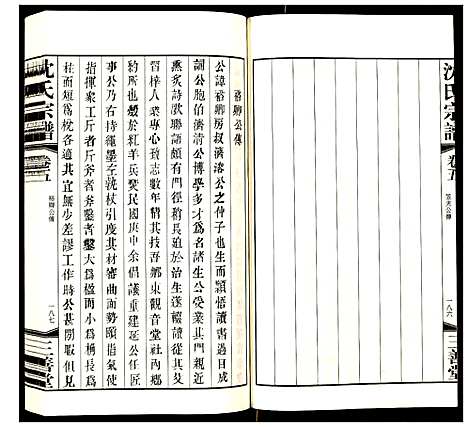 沈氏宗譜
卷五
笠夫公傳
一八六
三善堂
裕卿公傳
公諱裕卿房叔濱溶公之仲子也生而穎悟讀書過目成
誦公胞伯濱清公博學多才為名諸生公受業其門親近
薰炙詩歌聯語頗有門徑稍長迫於治生遂輟讀從其叟
習梓人業專心致志數年精其技吾鄉東觀音堂社內鄉
豹所也燬於紅羊兵燹民國庚申余倡議重建延公任匠
事公乃右執繩墨左執杖引度其材審曲面勢頤指氣使
指揮衆工斤者斤斧者斧鑿者鑿大為楹而小為桷長為
柱而短為梲各適其宜無少差謬工作時公甚閒暇但見
沈氏宗譜
卷五
裕卿公傳
一八七
三善堂